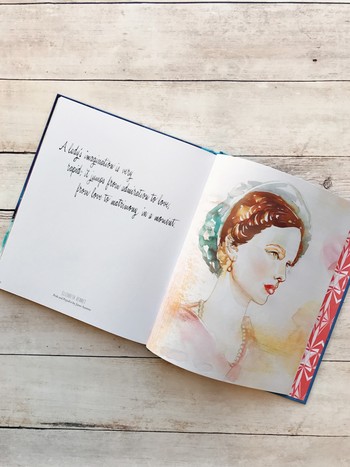 A lady's imagination is very
rapid; it jumps from admiration to love,
from love to matrimony in a moment.
ELIZABETH BENNET